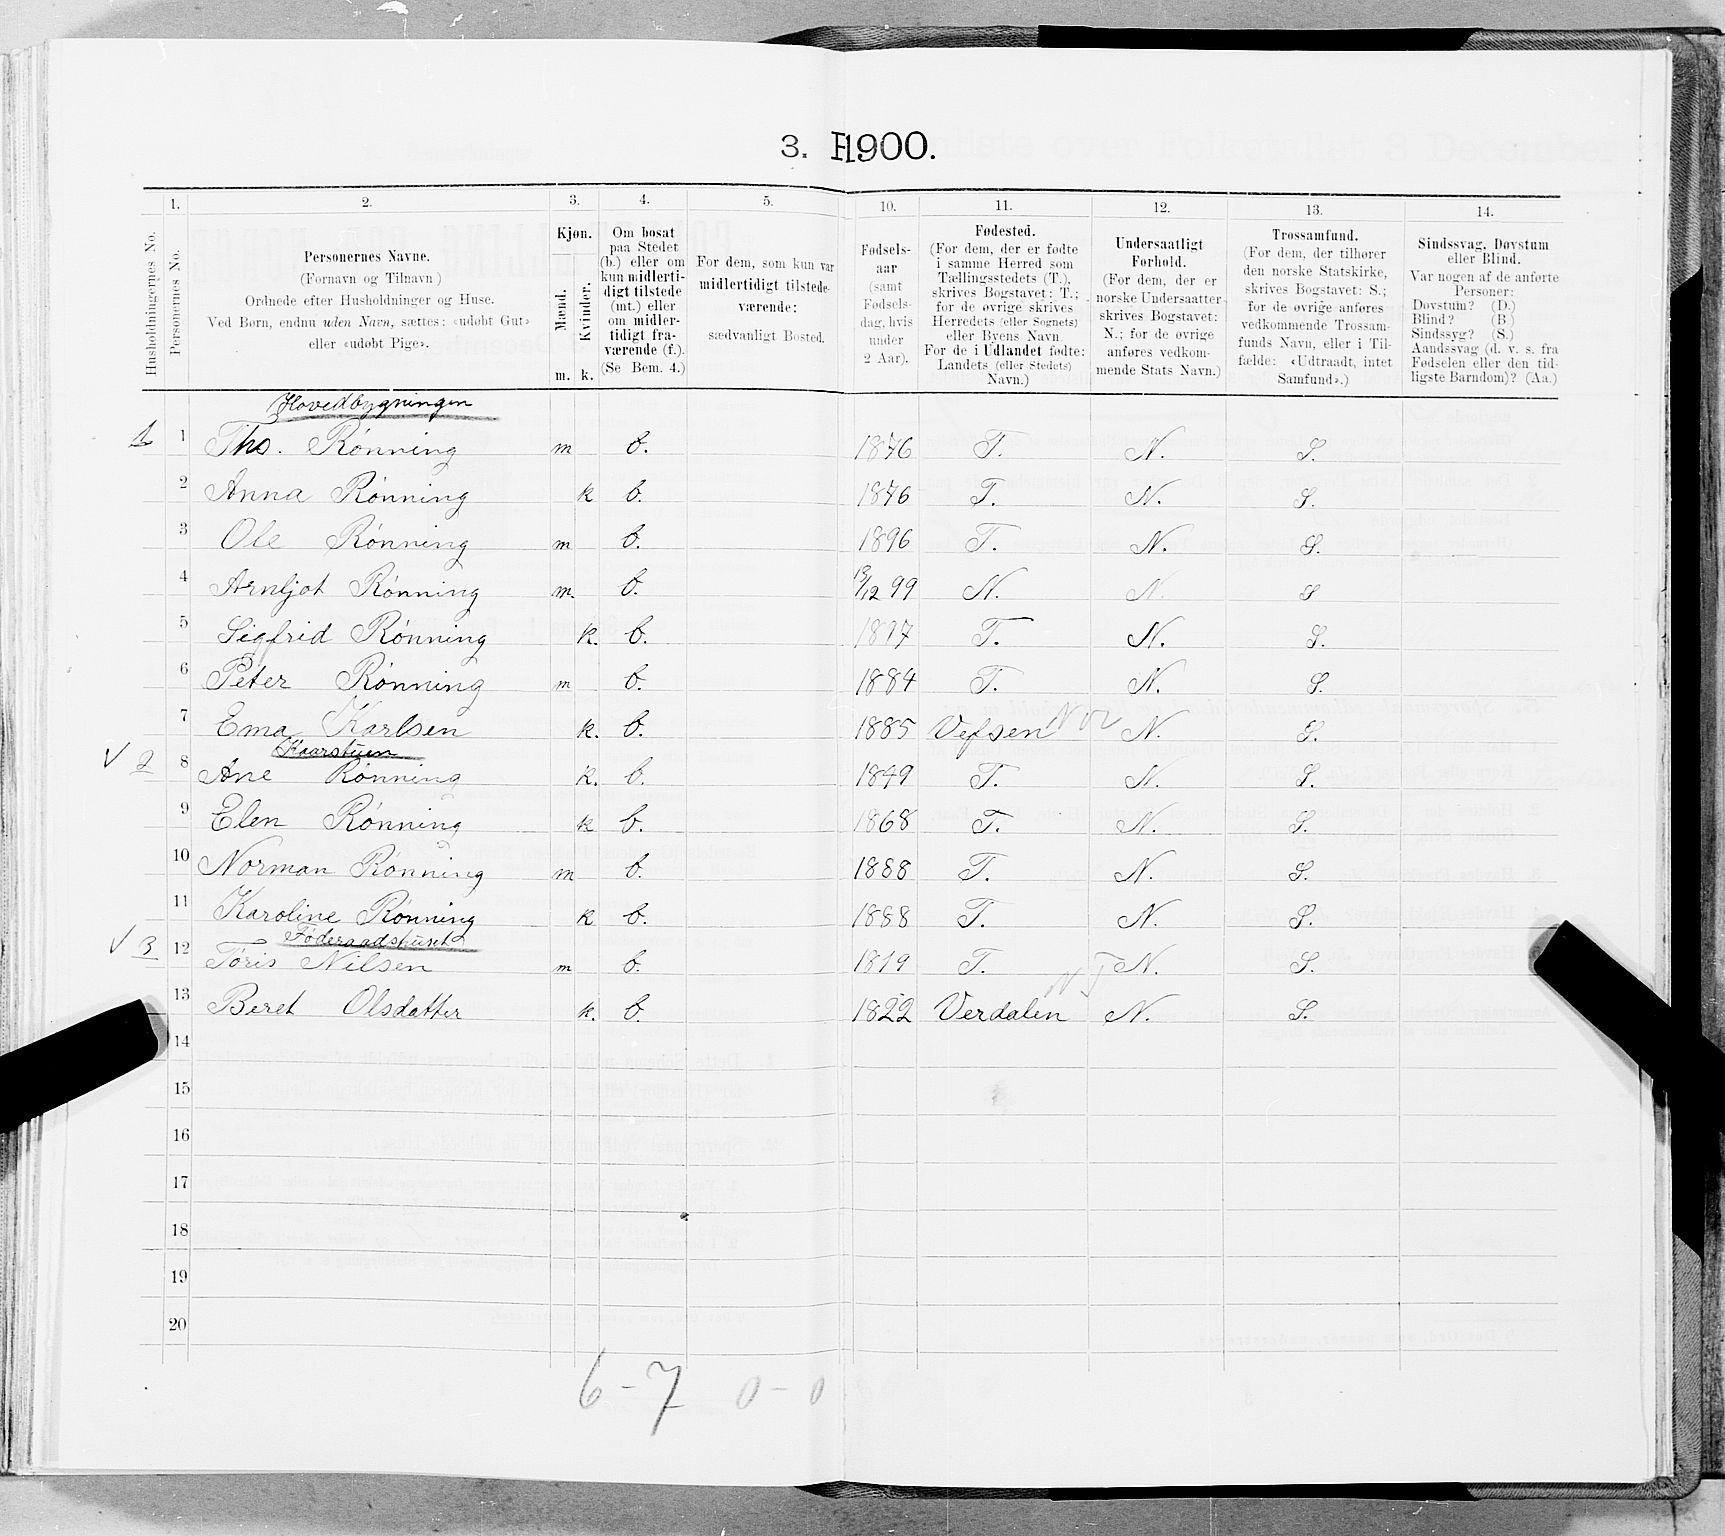 3. 1900.
1. 2. 3. 4. 5. 10. 11. 12. 13. 14.
Husholdningernes No.
Personernes No.
Personernes Navne.
(Fornavn og Tilnavn)
Ordnede efter Husholdninger og Huse.
Ved Børn, endnu uden Navn, sættes: «udøbt Gut»
eller «udøbt Pige».
Kjøn.
Mænd.
Kvinder.
m. k.
Om bosat
paa Stedet
(b.) eller om
kun midlerti-
digt tilstede
(mt.) eller
om midler-
tidigt fra-
værende (f.).
(Se Bem. 4.)
For dem, som kun var
midlertidigt tilstede-
værende:
sædvanligt Bosted.
Fødsels-
aar
(samt
Fødsels-
dag, hvis
under
2 Aar).
Fødested.
(For dem, der er fødte
i samme Herred som
Tællingsstedets (T.),
skrives Bogstavet: T.;
for de øvrige skrives
Herredets (eller Sognets)
eller Byens Navn.
For de i Udlandet fødte:
Landets (eller Stedets)
Navn.)
Undersaatligt
Forhold.
(For dem, der er
norske Undersaatter,
skrives Bogstavet:
N.; for de øvrige
anføres vedkom-
mende Stats Navn.)
Trossamfund.
(For dem, der tilhører
den norske Statskirke,
skrives Bogstavet: S.;
for de øvrige anføres
vedkommende Trossam-
funds Navn, eller i Til-
fælde: «Udtraadt, intet
Samfund».)
Sindssvag, Døvstum
eller Blind.
Var nogen af de anførte
Personer:
Døvstum? (D.)
Blind? (B.)
Sindssyg? (S.)
Aandssvag (d. v. s. fra
Fødselen eller den tid-
ligste Barndom)? (Aa.)
Hovedbygningen
1 1 Ths. Rönning m b. 1876 T. N. S.
2 Anna Rönning k b. 1876 T. N. S.
3 Ole Rönning m b. 1896 T. N. S.
4 Arnljot Rönning m. b. 13/12 99 N. N. S
5 Sigfrid Rönning k. b. 1897 T. N. S.
6 Peter Rönning m b. 1884 T. N. S.
7 Ema Karlsen k. b. 1885 Vefsen N. S.
Kaarstuen
√ 2 8 Ane Rönning k. b. 1849 T. N. S.
9 Elen Rönning k b. 1868 T. N. S.
10 Norman Rönning m b. 1888 T. N. S.
11 Karoline Rönning k b. 1888 T. N. S.
Föderaadshuset
√ 3 12 Töris Nilsen m b. 1819 T. N. S.
13 Beret Olsdatter k. b. 1822 Verdalen NT N. S.
14
15
16
17
18
19
20
6-7 0-0